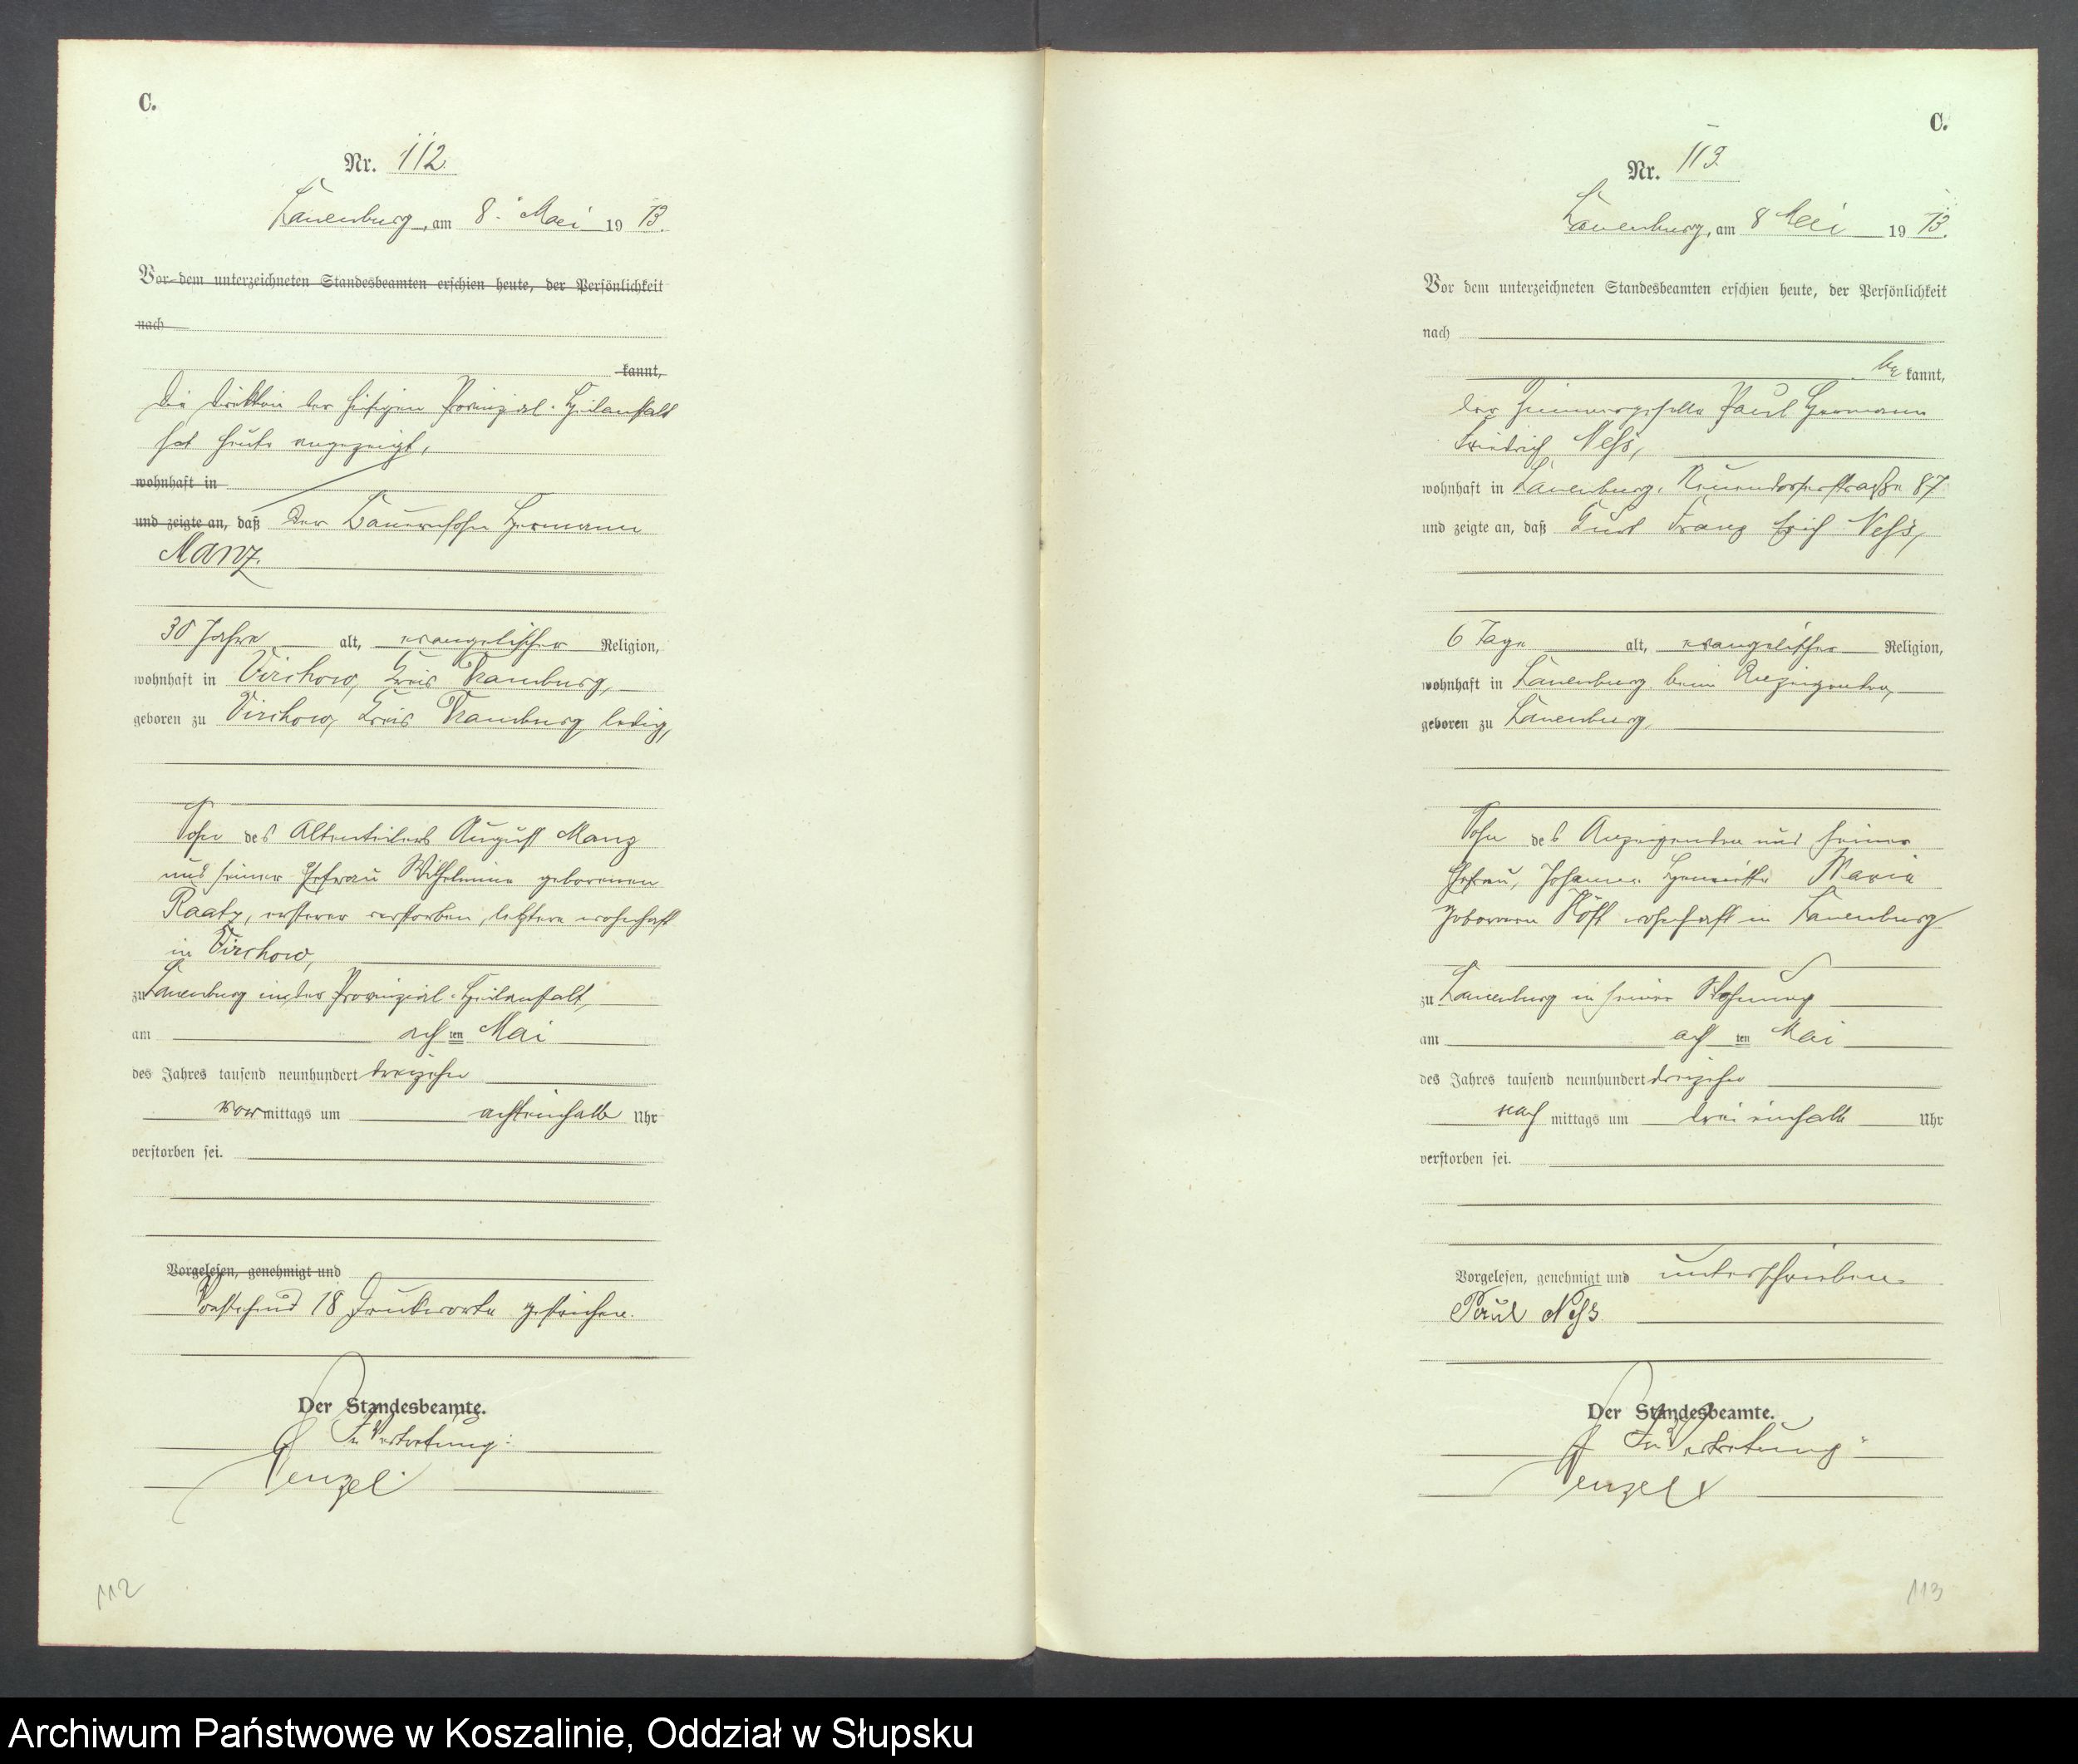 C.
Nr. 112.
Lauenburg, am 8. Mai 19 13.
Vor dem unterzeichneten Standesbeamten erschien heute, der Persönlichkeit
nach
kannt,
Die Direktion der hiesigen Provinzial-Heilanstalt
hat heute angezeigt,
wohnhaft in
und zeigte an, daß der Bauernsohn Hermann
Manz.
30 Jahre alt, evangelischer Religion,
wohnhaft in Virchow, Kreis Dramburg,
geboren zu Virchow, Kreis Dramburg ledig,
Sohn des Altenteilers August Manz
und seiner Ehefrau Wilhelmine geborenen
Raatz, ersterer verstorben, letztere wohnhaft
in Virchow,
zu Lauenburg in der Provinzial-Heilanstalt,
am achten Mai
des Jahres tausend neunhundert dreizehn
vormittags um achteinhalb Uhr
verstorben sei.
Vorgelesen, genehmigt und
Vorstehend 18 Druckworte gestrichen.
Der Standesbeamte.
In Vertretung:
Wenzel.
112
C.
Nr. 113.
Lauenburg, am 8 Mai 19 13.
Vor dem unterzeichneten Standesbeamten erschien heute, der Persönlichkeit
nach
be kannt,
der Zimmergeselle Paul Hermann
Friedrich Neß,
wohnhaft in Lauenburg, Neuendorferstraße 87
und zeigte an, daß Kurt Franz Erich Neß,
6 Tage alt, evangelischer Religion,
wohnhaft in Lauenburg beim Anzeigenden,
geboren zu Lauenburg,
Sohn des Anzeigenden und seiner
Ehefrau, Johanna Henriette Maria
geborenen wohnhaft in Lauenburg
zu Lauenburg in seiner Wohnung
am achten Mai
des Jahres tausend neunhundert dreizehn
nachmittags um drei einhalb Uhr
verstorben sei.
Vorgelesen, genehmigt und unterschrieben.
Paul Neß
Der Standesbeamte.
In Vertretung:
Wenzel
113
Archiwum Państwowe w Koszalinie, Oddział w Słupsku